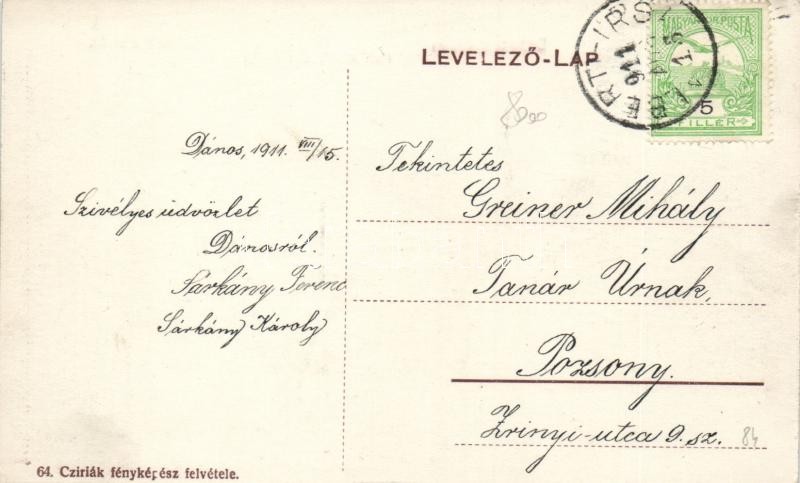 LEVELEZŐ-LAP
MAGYAR KIR. POSTA
5
FILLÉR
ALBERTI-IRSA
911
Dános, 1911. VIII/15.
Szivélyes üdvözlet
Dánosról.
Sárkány Ferenc
Sárkány Károly
Tekintetes
Greiner Mihály
Tanár Úrnak,
Pozsony.
Zrinyi-utca 9. sz.
84
64. Cziriák fényképész felvétele.